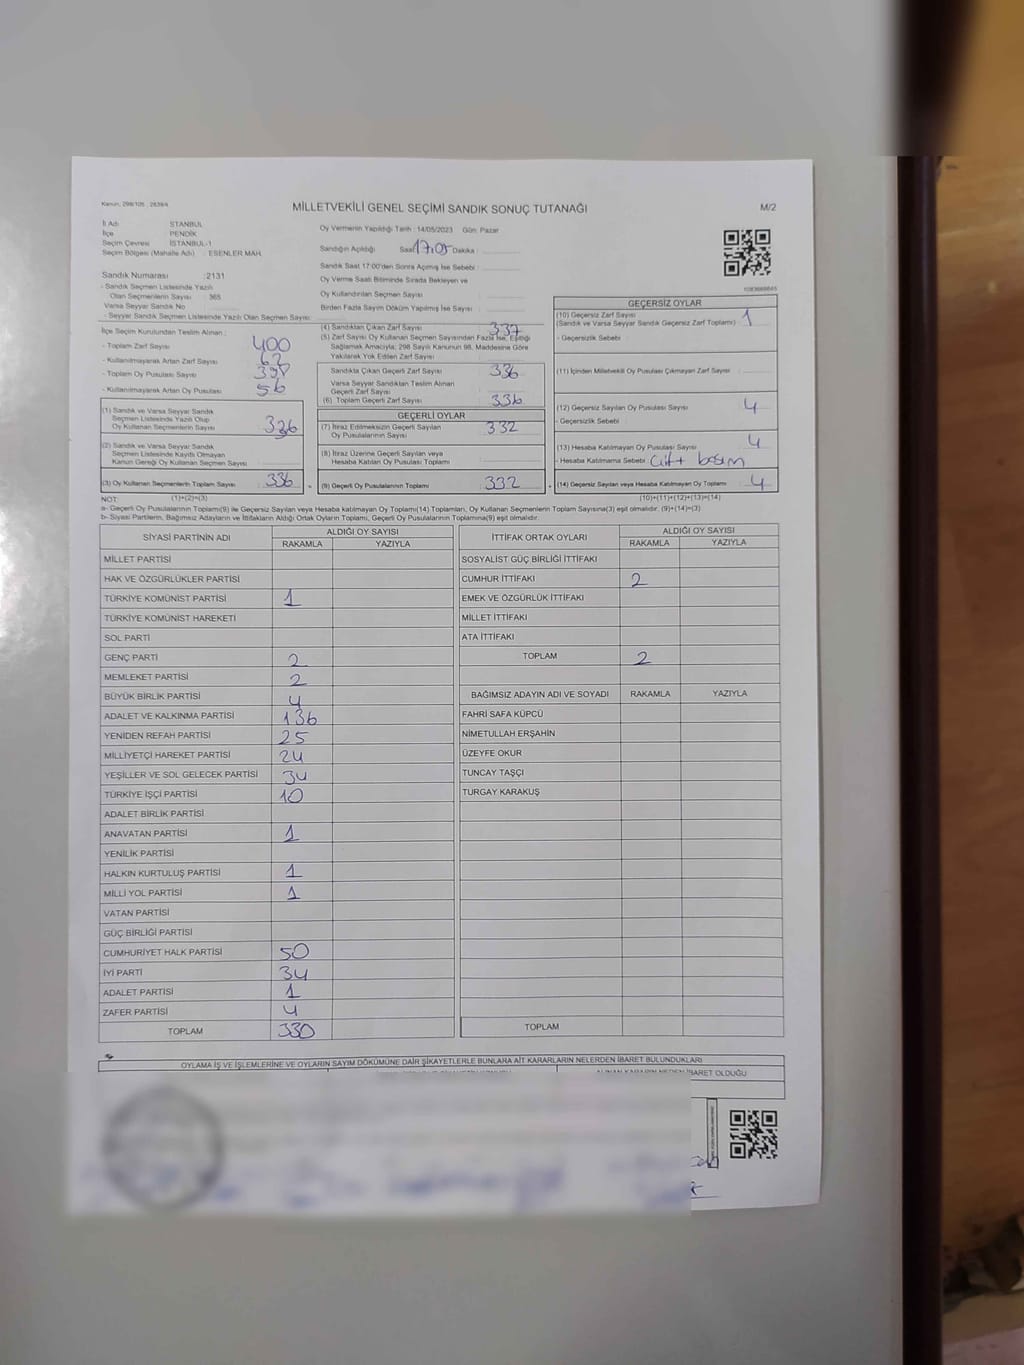 Kanun; 298/105 , 2839/4
MİLLETVEKİLİ GENEL SEÇİMİ SANDIK SONUÇ TUTANAĞI
M/2
İl Adı : İSTANBUL
İlçe : PENDİK
Seçim Çevresi : İSTANBUL-1
Seçim Bölgesi (Mahalle Adı) : ESENLER MAH.
Sandık Numarası : 2131
- Sandık Seçmen Listesinde Yazılı
Olan Seçmenlerin Sayısı : 365
Varsa Seyyar Sandık No
- Seyyar Sandık Seçmen Listesinde Yazılı Olan Seçmen Sayısı:
Oy Vermenin Yapıldığı Tarih : 14/05/2023 Gün: Pazar
Sandığın Açıldığı Saat 17:05 Dakika :
Sandık Saat 17:00'den Sonra Açılmış İse Sebebi :
Oy Verme Saati Bitiminde Sırada Bekleyen ve
Oy Kullandırılan Seçmen Sayısı
Birden Fazla Sayım Döküm Yapılmış İse Sayısı :
İlçe Seçim Kurulundan Teslim Alınan :
- Toplam Zarf Sayısı : 400
- Kullanılmayarak Artan Zarf Sayısı : 62
- Toplam Oy Pusulası Sayısı : 398
- Kullanılmayarak Artan Oy Pusulası : 56
(1) Sandık ve Varsa Seyyar Sandık
Seçmen Listesinde Yazılı Olup
Oy Kullanan Seçmen Sayısı : 336
(2) Sandık ve Varsa Seyyar Sandık
Seçmen Listesinde Kayıtlı Olmayan
Kanun Gereği Oy Kullanan Seçmen Sayısı :
(3) Oy Kullanan Seçmenlerin Toplam Sayısı : 336
(4) Sandıktan Çıkan Zarf Sayısı : 337
(5) Zarf Sayısı Oy Kullanan Seçmen Sayısından Fazla İse, Eşitliği
Sağlamak Amacıyla; 298 Sayılı Kanunun 98. Maddesine Göre
Yakılarak Yok Edilen Zarf Sayısı :
Sandıkta Çıkan Geçerli Zarf Sayısı : 336
Varsa Seyyar Sandıktan Teslim Alınan
Geçerli Zarf Sayısı
(6) Toplam Geçerli Zarf Sayısı : 336
GEÇERLİ OYLAR
(7) İtiraz Edilmeksizin Geçerli Sayılan
Oy Pusulalarının Sayısı : 332
(8) İtiraz Üzerine Geçerli Sayılan veya
Hesaba Katılan Oy Pusulası Toplamı
(9) Geçerli Oy Pusulalarının Toplamı : 332
GEÇERSİZ OYLAR
(10) Geçersiz Zarf Sayısı
(Sandık ve Varsa Seyyar Sandık Geçersiz Zarf Toplamı) : 1
- Geçersizlik Sebebi :
(11) İçinden Milletvekili Oy Pusulası Çıkmayan Zarf Sayısı :
(12) Geçersiz Sayılan Oy Pusulası Sayısı : 4
- Geçersizlik Sebebi :
(13) Hesaba Katılmayan Oy Pusulası Sayısı : 4
- Hesaba Katılmama Sebebi : Çift basım
(14) Geçersiz Sayılan veya Hesaba Katılmayan Oy Toplamı : 4
NOT: (1)+(2)=(3)
(10)+(11)+(12)+(13)=(14)
a- Geçerli Oy Pusulalarının Toplamı(9) ile Geçersiz Sayılan veya Hesaba katılmayan Oy Toplamı(14) Toplamları, Oy Kullanan Seçmenlerin Toplam Sayısına(3) eşit olmalıdır. (9)+(14)=(3)
b- Siyasi Partilerin, Bağımsız Adayların ve İttifakların Aldığı Ortak Oyların Toplamı, Geçerli Oy Pusulalarının Toplamına(9) eşit olmalıdır.
SİYASİ PARTİNİN ADI ALDIĞI OY SAYISI
RAKAMLA YAZIYLA
MİLLET PARTİSİ
HAK VE ÖZGÜRLÜKLER PARTİSİ
TÜRKİYE KOMÜNİST PARTİSİ 1
TÜRKİYE KOMÜNİST HAREKETİ
SOL PARTİ
GENÇ PARTİ 2
MEMLEKET PARTİSİ 2
BÜYÜK BİRLİK PARTİSİ 4
ADALET VE KALKINMA PARTİSİ 136
YENİDEN REFAH PARTİSİ 25
MİLLİYETÇİ HAREKET PARTİSİ 24
YEŞİLLER VE SOL GELECEK PARTİSİ 34
TÜRKİYE İŞÇİ PARTİSİ 10
ADALET BİRLİK PARTİSİ
ANAVATAN PARTİSİ 1
YENİLİK PARTİSİ
HALKIN KURTULUŞ PARTİSİ 1
MİLLİ YOL PARTİSİ 1
VATAN PARTİSİ
GÜÇ BİRLİĞİ PARTİSİ
CUMHURİYET HALK PARTİSİ 50
İYİ PARTİ 34
ADALET PARTİSİ 1
ZAFER PARTİSİ 4
TOPLAM 330
İTTİFAK ORTAK OYLARI ALDIĞI OY SAYISI
RAKAMLA YAZIYLA
SOSYALİST GÜÇ BİRLİĞİ İTTİFAKI
CUMHUR İTTİFAKI 2
EMEK VE ÖZGÜRLÜK İTTİFAKI
MİLLET İTTİFAKI
ATA İTTİFAKI
TOPLAM 2
BAĞIMSIZ ADAYIN ADI VE SOYADI RAKAMLA YAZIYLA
FAHRİ SAFA KÜPCÜ
NİMETULLAH ERŞAHİN
ÜZEYFE OKUR
TUNCAY TAŞÇI
TURGAY KARAKUŞ
TOPLAM
OYLAMA İŞ VE İŞLEMLERİNE VE OYLARIN SAYIM DÖKÜMÜNE DAİR ŞİKAYETLERLE BUNLARA AİT KARARLARIN NELERDEN İBARET BULUNDUKLARI
ALINAN KARARIN NEDEN İBARET OLDUĞU